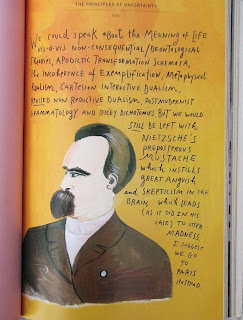 THE PRINCIPLES OF UNCERTAINTY
We could speak about the MEANING of LIFE
vis-à-vis NON-CONSEQUENTIAL/DEONTOLOGICAL
THEORIES, APODICTIC TRANSFORMATION SCHEMATA,
The INCOHERENCE of EXEMPLIFICATION, METAPHYSICAL
REALISM, CARTESIAN INTERACTIVE DUALISM,
REVISED NON REDUCTIVE DUALISM, POSTMODERNIST
GRAMMATOLOGY AND DICEY DICHOTOMIES. BUT WE WOULD
STILL BE LEFT WITH
NIETZSCHE'S
PREPOSTEROUS
MUSTACHE
WHICH INSTILLS
GREAT ANGUISH
and SKEPTICISM IN THE
BRAIN, which LEADS
(AS IT DID IN HIS
CASE) TO UTTER
MADNESS.
I SUGGEST
WE GO
TO
PARIS
INSTEAD.